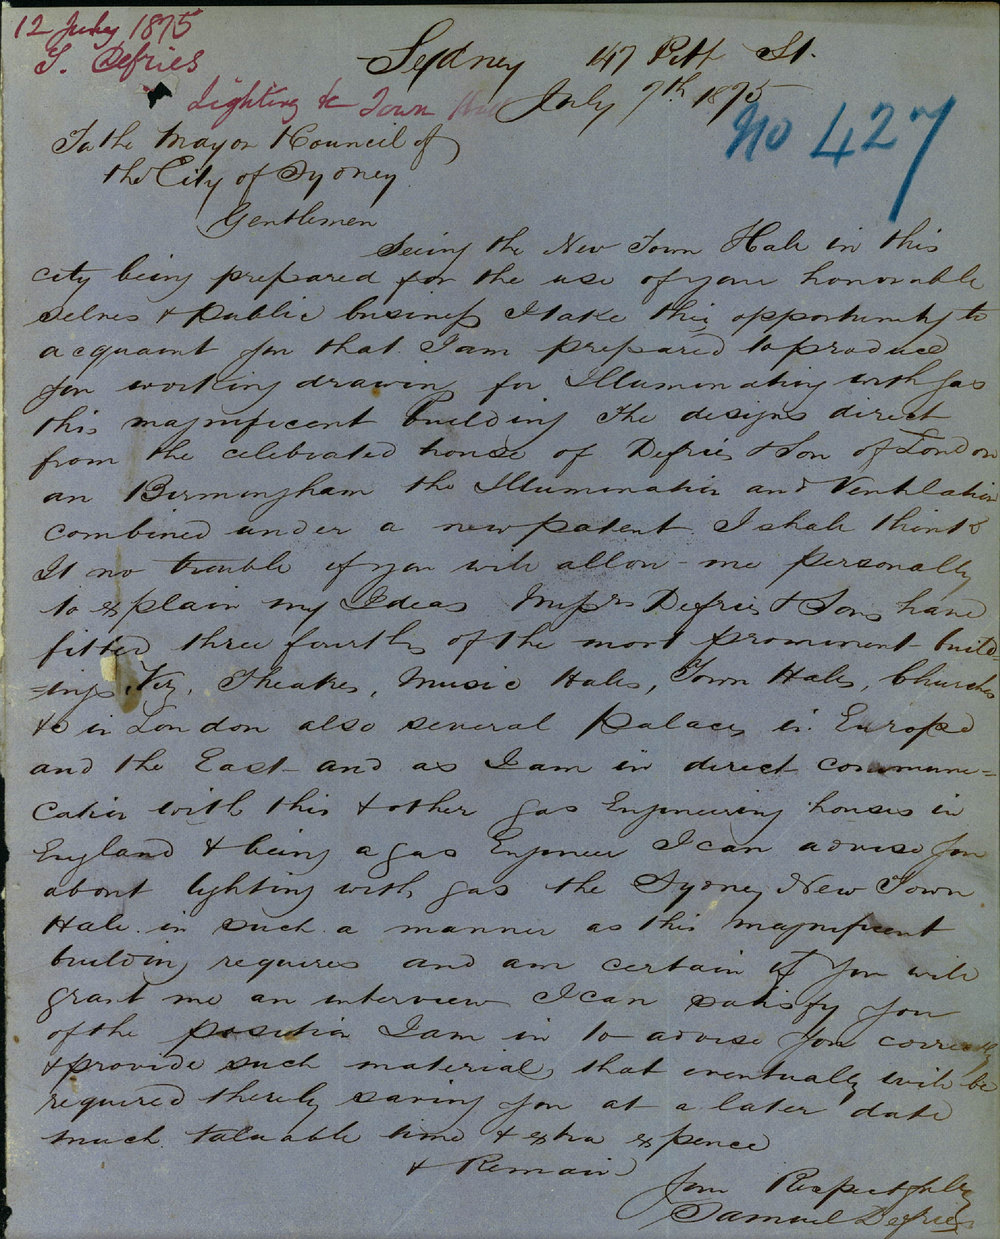 12 July 1875
S. Defries
Lighting &c Town Hall
Sydney 147 Pitt St.
July 7th 1875
No 427
To the Mayor & Council of
the City of Sydney
Gentlemen
Seeing the New Town Hall in this
city being prepared for the use of your honorable
selves & public business I take this opportunity to
acquaint you that I am prepared to produce
you working drawing for Illuminating with gas
this magnificent building The designs direct
from the celebrated house of Defries & Son of London
an Birmingham the Illumination and Ventilation
combined under a new patent I shall think
It no trouble if you will allow me personally
to explain my Ideas Messrs Defries & Sons have
fitted three fourths of the most prominent build=
=ings Viz, Theatres, Music Halls, Town Halls, Churches
&c in London also several palaces in Europe
and the East and as I am in direct communi=
cation with this & other gas Engineering houses in
England & being a gas Engineer I can advise you
about lighting with gas the Sydney New Town
Hall in such a manner as this magnificent
building requires and am certain if you will
grant me an interview I can satisfy you
of the position I am in to advise you correctly
& provide such material, that eventually will be
required thereby saving you at a later date
much valuable time & extra expence
& Remain
Your Respectfully
Samuel Defries